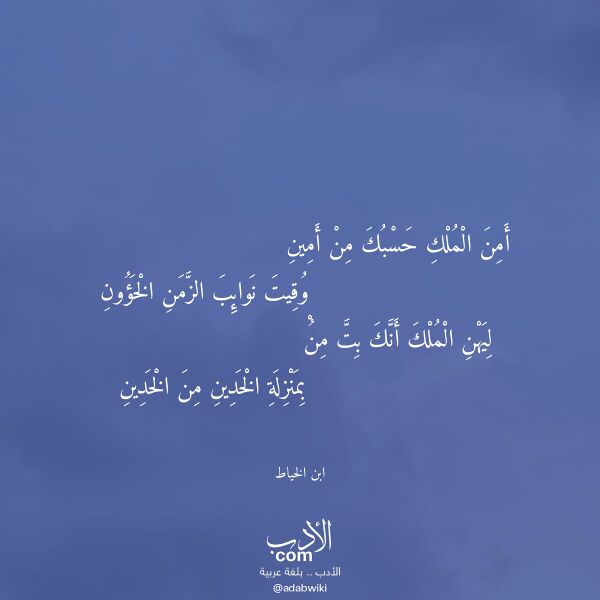 أَمِنَ الْمُلْكِ حَسْبُكَ مِنْ أَمِينِ
وُقِيتَ نَوائِبَ الزَّمَنِ الْخَؤُونِ
لِيَهْنِ الْمُلْكَ أَنَّكَ بِتَّ مِنْهُ
بِمَنْزِلَةِ الْخَدِينِ مِنَ الْخَدِينِ
ابن الخياط
الأدب
com
الأدب .. بلغة عربية
@adabwiki